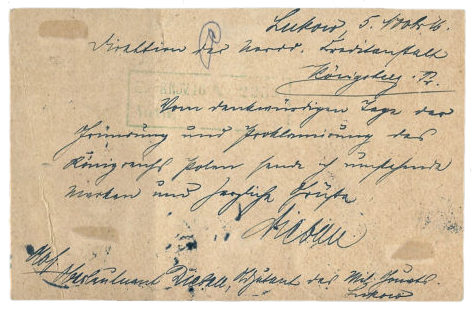 Lukow, 5. Nov. 16.
Direktion der Nordd. Kreditanstalt
Königsberg. Pr.
Vom denkwürdigen Tage der
Gründung und Proklamierung des
Königreichs Polen sende ich umstehende
Marken und herzliche Grüße
Abs. Oberleutnant Adjutant des
Lukow